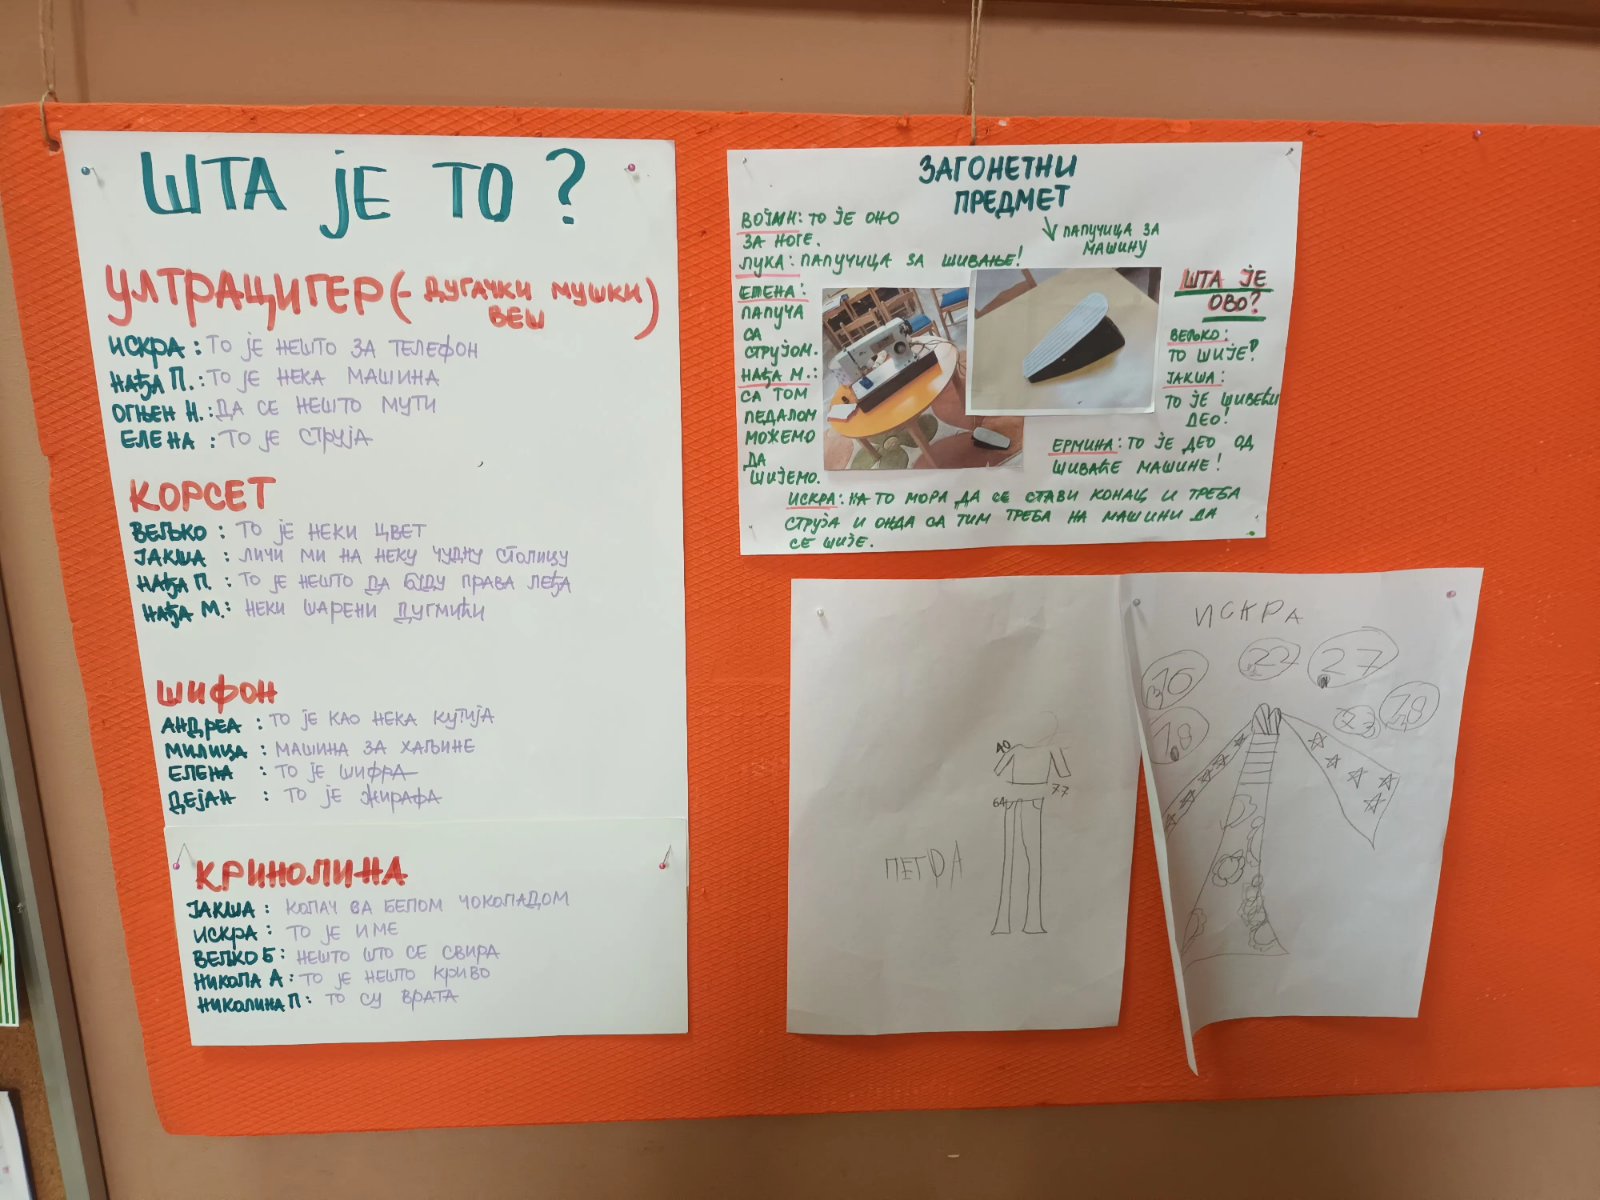 ШТА ЈЕ ТО ?
УЛТРАЦИГЕР (- ДУГАЧКИ МУШКИ
ВЕШ)
ИСКРА : ТО ЈЕ НЕШТО ЗА ТЕЛЕФОН
НАЂА П.: ТО ЈЕ НЕКА МАШИНА
ОГЊЕН Н.: ДА СЕ НЕШТО МУТИ
ЕЛЕНА : ТО ЈЕ СТРУЈА
КОРСЕТ
ВЕЉКО : ТО ЈЕ НЕКИ ЦВЕТ
ЈАКША : ЛИЧИ МИ НА НЕКУ ЧУДНУ СТОЛИЦУ
НАЂА П. : ТО ЈЕ НЕШТО ДА БУДУ ПРАВА ЛЕЂА
НАЂА М.: НЕКИ ШАРЕНИ ДУГМИЋИ
ШИФОН
АНДРЕА : ТО ЈЕ КАО НЕКА КУТИЈА
МИЛИЦА : МАШИНА ЗА ХАЉИНЕ
ЕЛЕНА : ТО ЈЕ ШИФРА
ДЕЈАН : ТО ЈЕ ЖИРАФА
КРИНОЛИНА
ЈАКША : КОЛАЧ СА БЕЛОМ ЧОКОЛАДОМ
ИСКРА : ТО ЈЕ ИМЕ
ВЕЉКО Б : НЕШТО ШТО СЕ СВИРА
НИКОЛА А : ТО ЈЕ НЕШТО КРИВО
НИКОЛИНА П : ТО СУ ВРАТА
ЗАГОНЕТНИ
ПРЕДМЕТ
ПАПУЧИЦА ЗА
МАШИНУ
ВОЈИН: ТО ЈЕ ОНО
ЗА НОГЕ.
ЛУКА: ПАПУЧИЦА ЗА ШИВАЊЕ!
ЕЛЕНА:
ПАПУЧА
СА
СТРУЈОМ.
НАЂА М.:
СА ТОМ
ПЕДАЛОМ
МОЖЕМО
ДА
ШИЈЕМО.
ШТА ЈЕ
ОВО?
ВЕЉКО:
ТО ШИЈЕ?
ЈАКША:
ТО ЈЕ ШИВЕЋИ
ДЕО!
ЕРМИНА: ТО ЈЕ ДЕО ОД
ШИВАЋЕ МАШИНЕ!
ИСКРА: НА ТО МОРА ДА СЕ СТАВИ КОНАЦ И ТРЕБА
СТРУЈА И ОНДА СА ТИМ ТРЕБА НА МАШИНИ ДА
СЕ ШИЈЕ.
40
64
77
ПЕТРА
ИСКРА
22
27
23